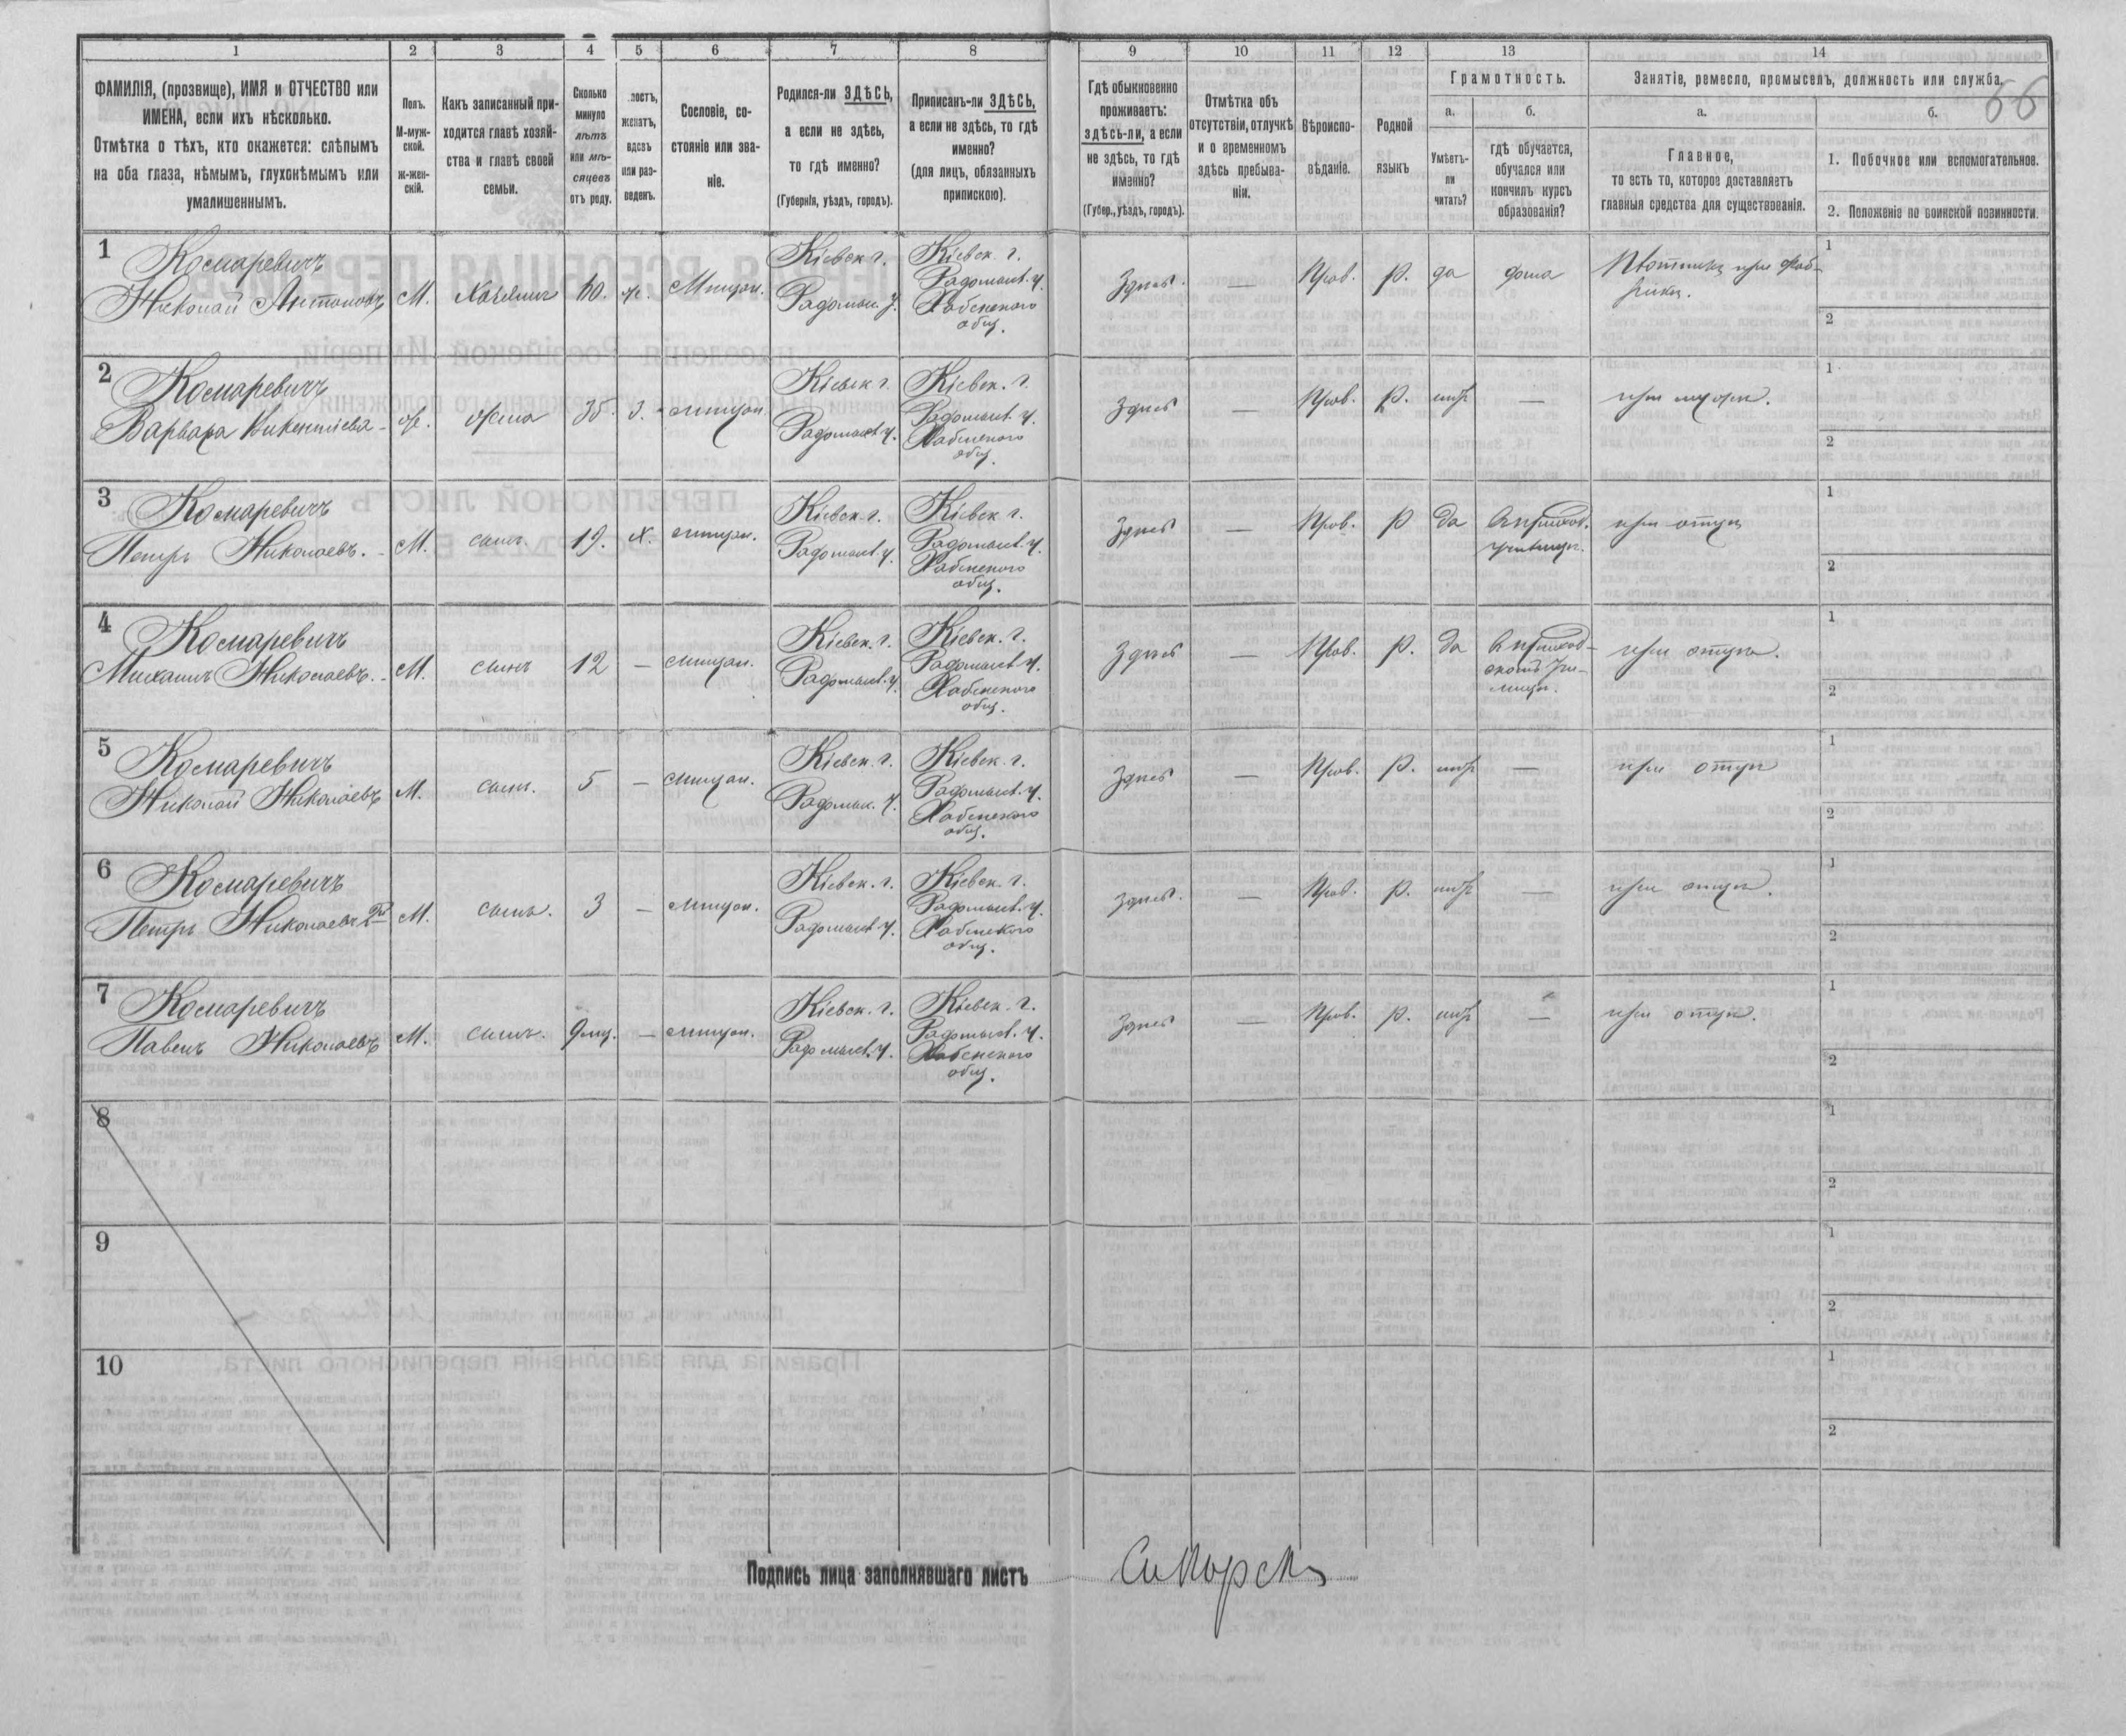 1 2 3 4 5 6 7 8 9 10 11 12 13 14
66
ФАМИЛІЯ, (прозвище), ИМЯ и ОТЧЕСТВО или
ИМЕНА, если ихъ нѣсколько.
Отмѣтка о тѣхъ, кто окажется: слѣпымъ
на оба глаза, нѣмымъ, глухонѣмымъ или
умалишеннымъ.
Полъ.
М-муж-
ской.
ж-жен-
скій.
Какъ записанный при-
ходится главѣ хозяй-
ства и главѣ своей
семьи.
Сколько
минуло
лѣтъ
или мѣ-
сяцевъ
отъ роду.
женатъ,
вдовъ
или раз-
веденъ.
Сословіе, со-
стояніе или зва-
ніе.
Родился-ли ЗДѢСЬ,
а если не здѣсь,
то гдѣ именно?
(Губернія, уѣздъ, городъ).
Приписанъ-ли ЗДѢСЬ,
а если не здѣсь, то гдѣ
именно?
(для лицъ, обязанныхъ
припискою).
Гдѣ обыкновенно
проживаетъ:
здѣсь-ли, а если
не здѣсь, то гдѣ
именно?
(Губер., уѣздъ, городъ).
Отмѣтка объ
отсутствіи, отлучкѣ
и о временномъ
здѣсь пребыва-
ніи.
Вѣроиспо-
вѣданіе.
Родной
языкъ
Грамотность.
а.
Умѣетъ-
ли
читать?
б.
гдѣ обучается,
обучался или
кончилъ курсъ
образованія?
Занятіе, ремесло, промыселъ, должность или служба.
а.
Главное,
то есть то, которое доставляетъ
главныя средства для существованія.
б.
1. Побочное или вспомогательное.
2. Положеніе по воинской повинности.
1 Комаревичъ
Николай Антоновъ М. Хозяинъ 60. ж. Мѣщан. Кіевск. г. Радомыс. у. Кіевск. г. Радомысл. у. Хабенского общ. Здѣсь — Прав. р. да дома Плотникъ при фаб-
рикѣ. 1
2
2 Комаревичъ
Варвара Викентіева ж. жена 35. з. мѣщан. Кіевск. г. Радомысл. у. Кіевск. г. Радомысл. у. Хабенского общ. Здѣсь — Прав. р. нѣтъ — при мужѣ. 1
2
3 Комаревичъ
Петръ Николаевъ. М. сынъ. 19. х. мѣщан. Кіевск. г. Радомысл. у. Кіевск. г. Радомысл. у. Хабенского общ. Здѣсь — Прав. р да В приход.
училищѣ. при отцѣ 1
2
4 Комаревичъ
Михаилъ Николаевъ. М. сынъ 12 — мѣщан. Кіевск. г. Радомысл. у. Кіевск. г. Радомысл. у. Хабенского общ. Здѣсь — Прав. р. да В приход-
скомъ учи-
лищѣ. при отцѣ. 1
2
5 Комаревичъ
Николай Николаевъ М. сынъ. 5 — мѣщан. Кіевск. г. Радомыс. у. Кіевск. г. Радомысл. у. Хабенского общ. Здѣсь — Прав. р. нѣтъ — при отцѣ 1
2
6 Комаревичъ
Петръ Николаевъ 2й М. сынъ. 3 — мѣщан. Кіевск. г. Радомысл. у. Кіевск. г. Радомысл. у. Хабенского общ. Здѣсь. — Прав. р. нѣтъ — при отцѣ. 1
2
7 Комаревичъ
Павелъ Николаевъ М. сынъ. 9 мѣц. — мѣщан. Кіевск. г. Радомысл. у. Кіевск. г. Радомысл. у. Хабенского общ. Здѣсь — Прав. р. нѣтъ — при отцѣ. 1
2
8 1
2
9 1
2
10 1
2
Подпись лица заполнявшаго листъ